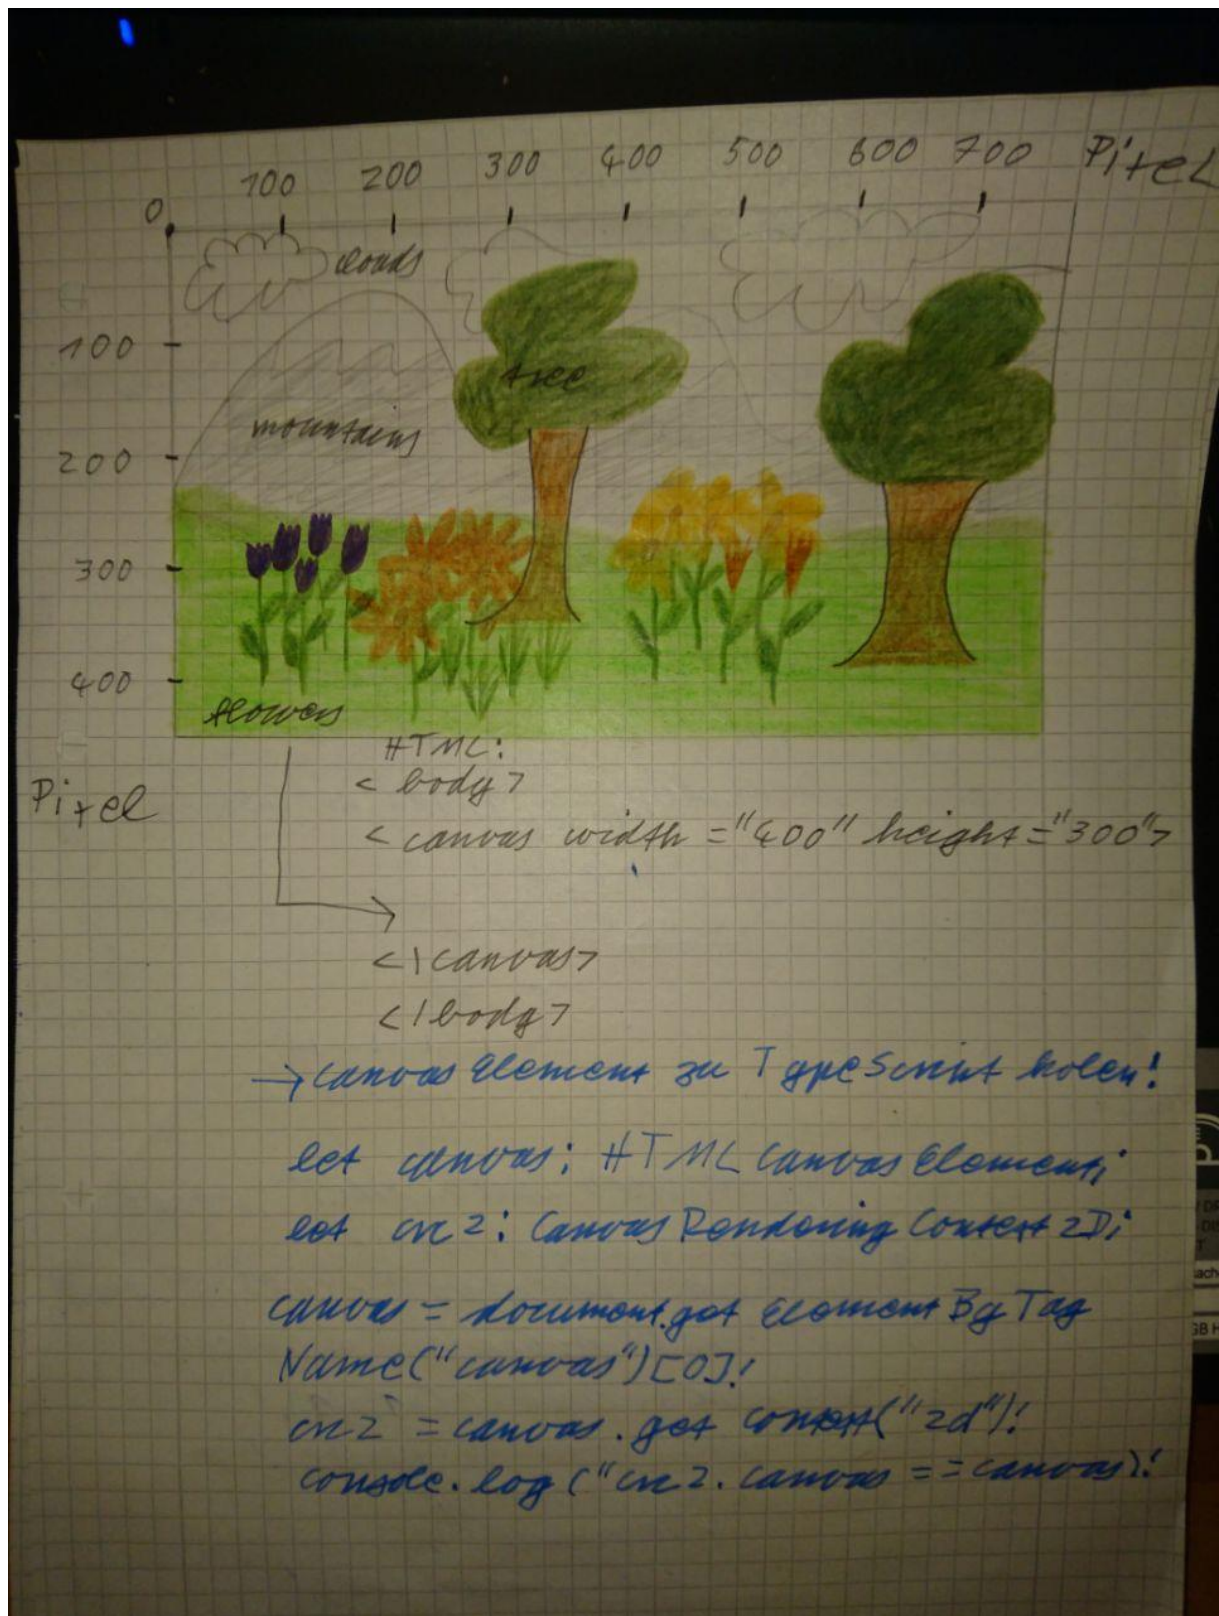 100 200 300 400 500 600 700 Pixel
0
clouds
100
tree
mountains
200
300
400
flowers
HTML:
Pixel
< body >
< canvas width ="400" height="300">
<\canvas>
</body>
→ canvas Element zu TypeScript holen!
let canvas: HTML Canvas Element;
let crc2: Canvas Rendering Context 2D;
canvas = document.get Element By Tag
Name("canvas")[0];
crc2 = canvas.get context("2d");
console.log("crc2.canvas == canvas);